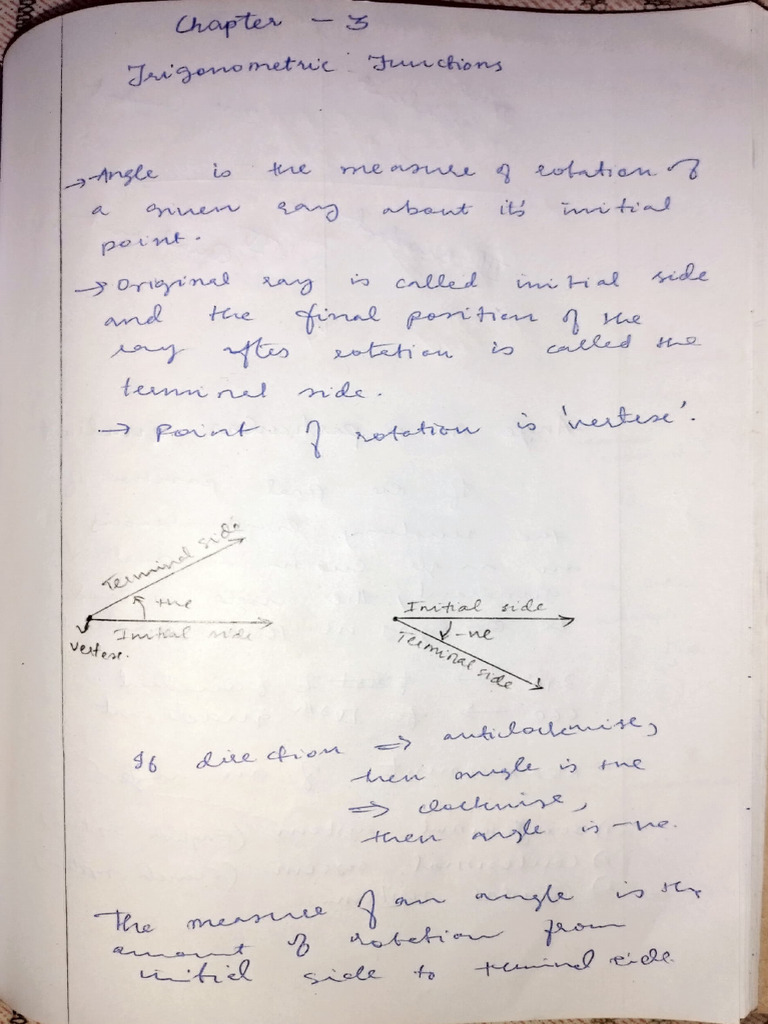 Chapter - 3
Trigonometric Functions
→ Angle is the measure of rotation of
a given ray about it's initial
point.
→ Original ray is called initial side
and the final position of the
ray after rotation is called the
terminal side.
→ Point of rotation is 'vertex'.
Terminal side
+ve
Initial side
vertex.
Initial side
-ve
Terminal side
If direction ⇒ anticlockwise,
then angle is +ve
⇒ clockwise,
then angle is -ve.
The measure of an angle is the
amount of rotation from
initial side to terminal side.